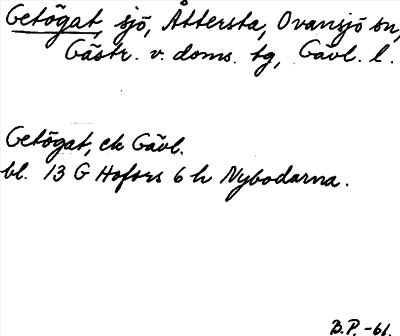 Getögat, sjö, Åttersta, Ovansjö sn,
Gästr. v. doms. tg, Gävl. l.
Getögat, ek Gävl.
bl. 13 G Hofors 6 h Nybodarna.
B.P. -61.